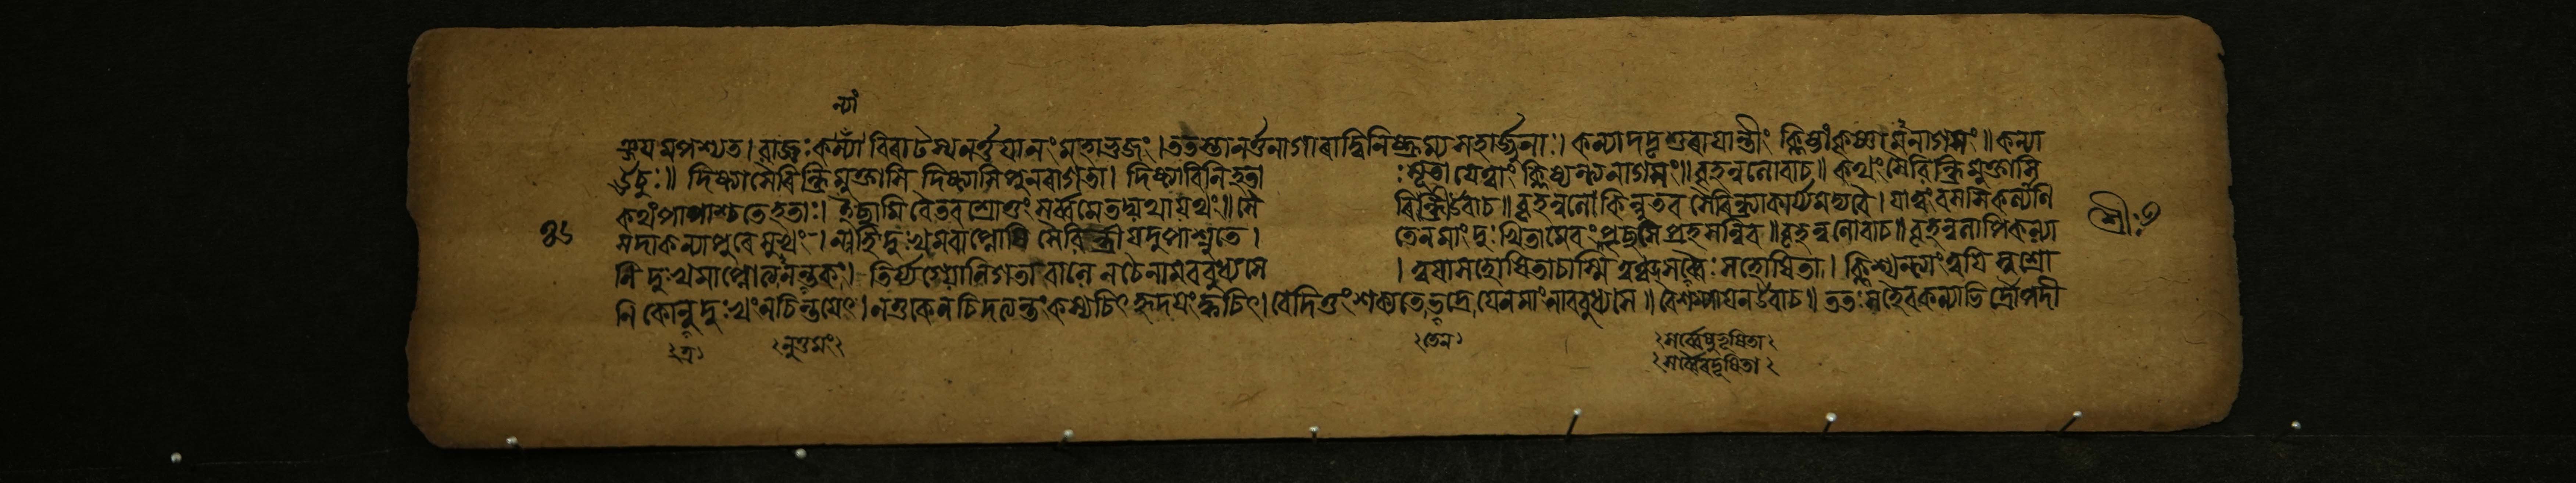 ন্যাং
ঞ্জয়মপশ্যত। ৰাজ্ঞঃ কন্যাং বিৰাটস্য নর্ত্তয়ানং মহাভুজং। ততস্তা নর্ত্তনাগাৰাদ্বিনিষ্ক্রম্য সহার্জ্জুনাঃ। কন্যা দদৃশুৰায়ান্তীং ক্লিষ্টাং কৃষ্ণামনাগসং॥ কন্যা
ঊচুঃ॥ দিষ্ট্যা সৈৰিন্ধ্রি মুক্তাসি দিষ্ট্যাসি পুনৰাগতা। দিষ্ট্যা বিনিহতাঃ সূতা যে ত্বাং ক্লিশ্যন্ত্যনাগসং॥ বৃহন্নলোবাচ॥ কথং সৈৰিন্ধ্রি মুক্তাসি
কথং পাপাশ্চ তে হতাঃ। ইচ্ছামি বৈ তব শ্রোতুং সর্ব্বমেতদ্যথাযথং॥ সৈৰিন্ধ্রী উবাচ॥ বৃহন্নলে কিন্নু তব সৈৰিন্ধ্র্যা কার্য্যমদ্য বৈ। যা ত্বং বসসি কল্যাণি
শ্রীঃ ৭
সদা কন্যাপুৰে সুখং। ন হি দুঃখমবাপ্নোষি সৈৰিন্ধ্রী যদুপাশ্নুতে। তেন মাং দুঃখিতামেবং পৃচ্ছসি প্রহসন্নিব॥ বৃহন্নলোবাচ॥ বৃহন্নলাপি কল্যা
ণি দুঃখমাপ্নোত্যনন্তকং। তির্য্যগ্যোনিগতা বালে ন চৈনামববুধ্যসে। ত্বয়া সহোষিতা চাস্মি ত্বঞ্চ সর্ব্বৈঃ সহোষিতা। ক্লিশ্যন্ত্যাং ত্বয়ি সুশ্রো
ণি কো নু দুঃখং ন চিন্তয়েৎ। ন তু কেনচিদত্যন্তং কস্যচিৎ হৃদয়ং ক্বচিৎ। বেদিতুং শক্যতে ভদ্রে যেন মাং নাববুধ্যসে॥ বৈশম্পায়ন উবাচ॥ ততঃ সহৈব কন্যাভির্দ্রৌপদী
নুত্তমং তেন